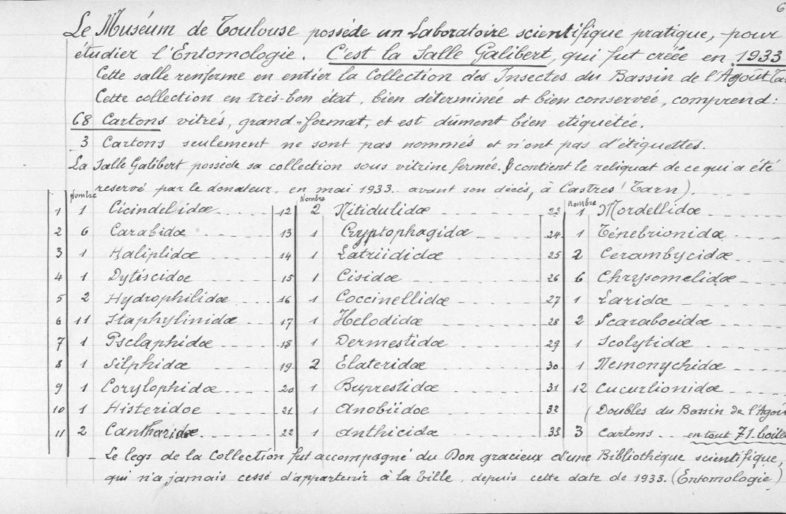 6
Le Muséum de Toulouse possède un Laboratoire scientifique pratique, pour
étudier l'Entomologie. C'est la Salle Galibert, qui fut créée en 1933
Cette salle renferme en entier la Collection des Insectes du Bassin de l'Agout
Cette collection en très-bon état, bien déterminée et bien conservée, comprend:
68 Cartons vitrés, grand-format, et est dûment bien étiquetée.
3 Cartons seulement ne sont pas nommés et n'ont pas d'étiquettes.
La Salle Galibert possède sa collection sous vitrine fermée. contient le reliquat de ce qui a été
reservé par le donateur, en mai 1933. avant son décès, à Castres (Tarn)
Nombre Nombre Nombre
1 1 Cicindelidæ 12 2 Nitidulidæ 23 1 Mordellidæ
2 6 Carabidæ 13 1 Cryptophagidæ 24 1 Ténebrionidæ
3 1 Haliplidæ 14 1 Latriididæ 25 2 Cerambycidæ
4 1 Dytiscidæ 15 1 Cisidæ 26 6 Chrysomelidæ
5 2 Hydrophilidæ 16 1 Coccinellidæ 27 1 Laridæ
6 11 Staphylinidæ 17 1 Helodidæ 28 2 Scarabœidæ
7 1 Psclaphidæ 18 1 Dermestidæ 29 1 Scolytidæ
8 1 Silphidæ 19 2 Elateridæ 30 1 Nemonychidæ
9 1 Corylophidæ 20 1 Buprestidæ 31 12 Cucurlionidæ
10 1 Histeridœ 21 1 Anobiidœ 32 (Doubles du Bassin de l'Agout
11 2 Cantharidæ 22 1 Anthicidæ 33 3 Cartons en tout 71 boites
Le legs de la Collection fut accompagné du Don gracieux d'une Bibliothèque scientifique,
qui n'a jamais cessé d'appartenir à la Ville, depuis cette date de 1933. (Entomologie)